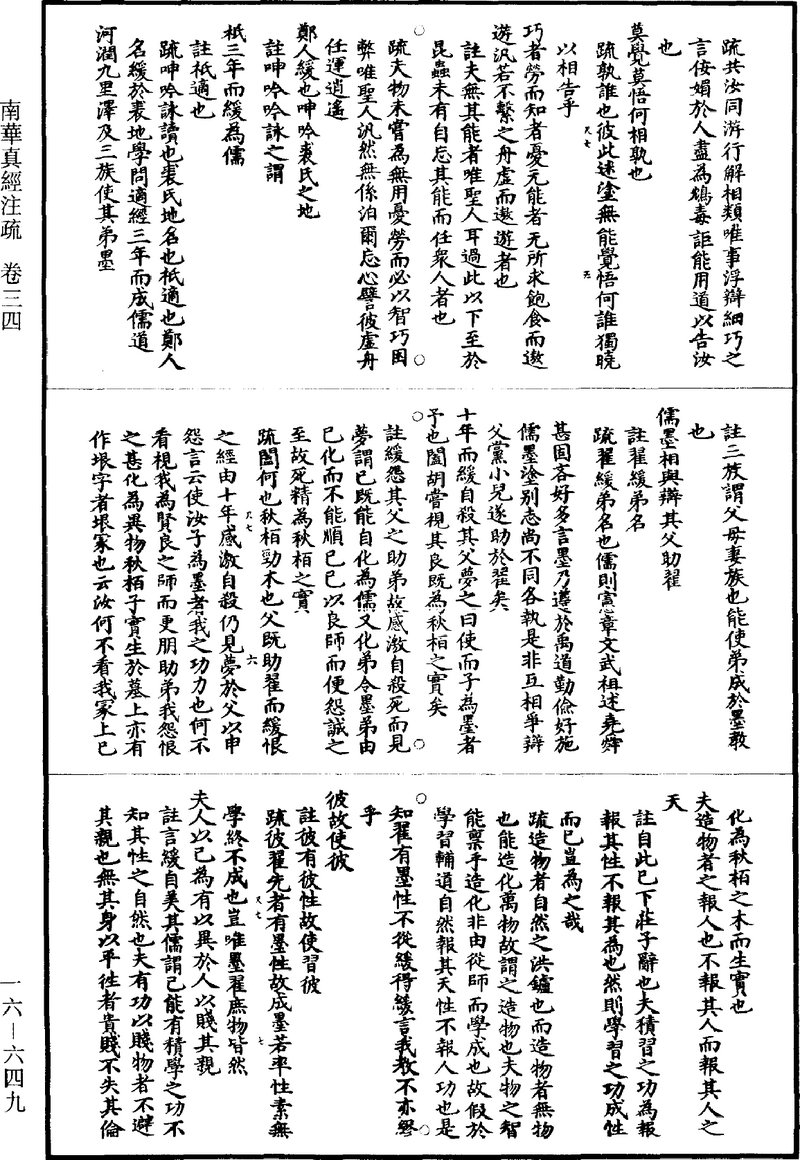 南華真經注疏　卷三四
一六—六四九
疏共汝同游行解相類唯事浮辯細巧之
言佞媚於人盡為鴆毒詎能用道以告汝
也
莫覺莫悟何相孰也
疏孰誰也彼此迷塗無能覺悟何誰獨曉
以相告乎
巧者勞而知者憂无能者无所求飽食而遨
遊汎若不繫之舟虛而遨遊者也
註夫無其能者唯聖人耳過此以下至於
昆蟲未有自忘其能而任衆人者也
疏夫物未嘗為無用憂勞而必以智巧困
弊唯聖人汎然無係泊爾忘心譬彼虛舟
任運逍遙
鄭人緩也呻吟裘氏之地
註呻吟吟詠之謂
祇三年而緩為儒
註祇適也
疏呻吟詠讀也裘氏地名也祇適也鄭人
名緩於裘地學問適經三年而成儒道
河潤九里澤及三族使其弟墨
註三族謂父母妻族也能使弟成於墨教
也
儒墨相與辯其父助翟
註翟緩弟名
疏翟緩弟名也儒則憲章文武祖述堯舜
甚固吝好多言墨乃遵於禹道勤儉好施
儒墨塗別志尚不同各執是非互相爭辯
父黨小兒遂助於翟矣
十年而緩自殺其父夢之曰使而子為墨者
予也闔胡嘗視其良既為秋栢之實矣
註緩怨其父之助弟故感激自殺死而見
夢謂已既能自化為儒又化弟令墨弟由
已化而不能順已已以良師而便怨誠之
至故死精為秋栢之實
疏闔何也秋栢勁木也父既助翟而緩恨
之經由十年感激自殺仍見夢於父以申
怨言云使汝子為墨者我之功力也何不
看視我為賢良之師而更朋助弟我怨恨
之甚化為異物秋栢子實生於墓上亦有
作垠字者垠冢也云汝何不看我冢上已
化為秋栢之木而生實也
夫造物者之報人也不報其人而報其人之
天
註自此已下莊子辭也夫積習之功為報
報其性不報其為也然則學習之功成性
而已豈為之哉
疏造物者自然之洪鑪也而造物者無物
也能造化萬物故謂之造物也夫物之智
能稟乎造化非由從師而學成也故假於
學習輔道自然報其天性不報人功也是
知翟有墨性不從緩得緩言我教不亦繆
乎
彼故使彼
註彼有彼性故使習彼
疏彼翟先者有墨性故成墨若率性素無
學終不成也豈唯墨翟庶物皆然
夫人以已為有以異於人以賤其親
註言緩自美其儒謂已能有積學之功不
知其性之自然也夫有功以賤物者不避
其親也無其身以平性者貴賤不失其倫